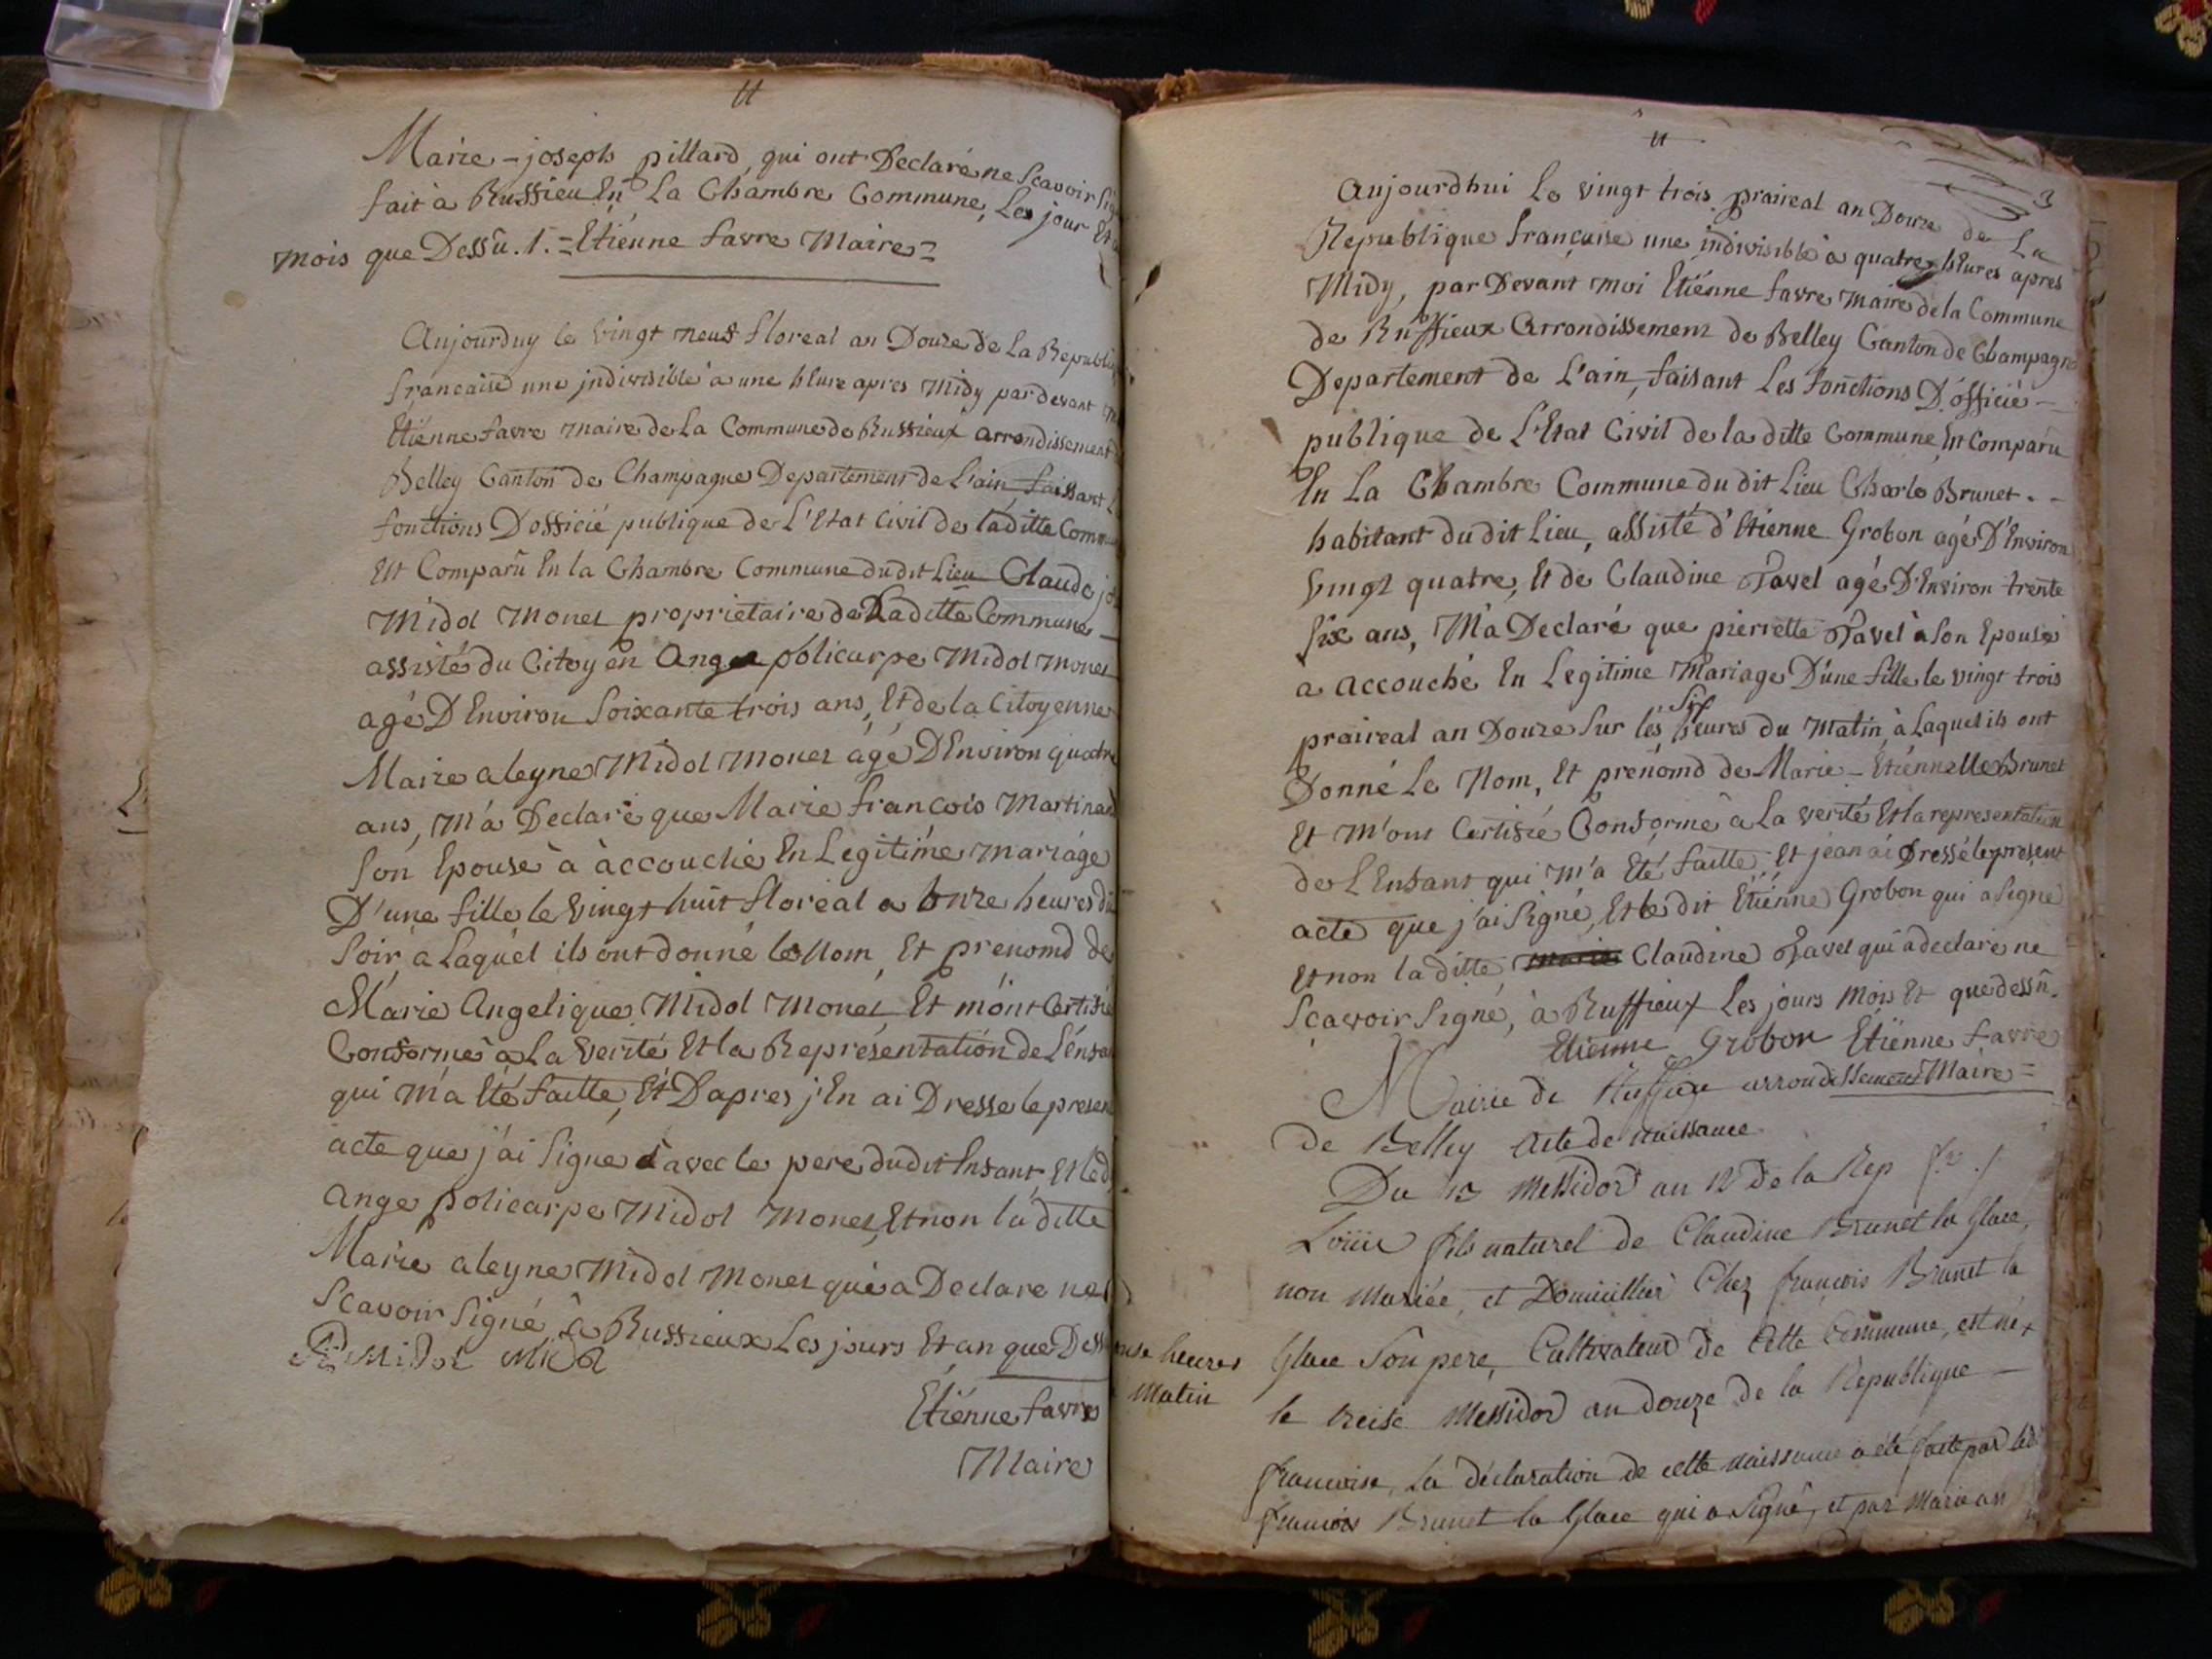 Marie-joseph pillard, qui ont Declaré ne Scavoir
fait à Russieu En La Chambre Commune, Les jour Et
mois que Dessû. 1. = Etiénne favre Maire =
Aujourduy le vingt neuf floreal an Douze de La Republi
francaise une jndivisible à une hEure apres Midy par devant
Etiénne favre maire de La Commune de Russieux arrondissement
Belley Canton de Champagne Departement de L'ain faisant
fonctions D'officié publique de L'Etat Civil de laditte Comm
Est Comparû En la Chambre Commune dudit Lieu Claude
Midol Monet proprietaire de Laditte Commune
assisté du Citoyén Ange policarpe Midol monet
agé D'Environ Soixante trois ans, Et de la Citoyenne
Marie aleyne Midol Monet agé D'Environ quatre
ans, M'a Declaré que Marie francois Martinand
Son Epouse à àccouché En Legitime mariage
D'une fille le vingt huit floreal a onze heures du
Soir, a Laquel ils ont donné le Nom, Et prenomd de
Marie Angelique Midol Monet, Et m'ont Certifié
Conforme à La Verité Et la Représentation de L'énfa
qui m'a Eté faitte, Et D'apres j'En ai Dresse le presen
acte que j'ai Signe avec le pere dudit Enfant, Et led
Ange policarpe Midol Monet, Et non laditte
Marie aleyne Midol Monet qui a Declare ne
Scavoir Signé, à Russieux Les jours Et an que Dess
Etiénne favre
Maire
3
Aujourdhui Le vingt trois praireal an Douze de La
Republique francaise une indivisible à quatre hEures apres
Midy, par Devant moi Etiénne favre maire de la Commune
de Ruffieux Arrondissement de Belley Canton de Champagne
Departement de L'ain, faisant Les fonctions D'officié -
publique de L'Etat Civil de laditte Commune Est Comparu
En La Chambre Commune dudit Lieu Charle Brunet . -
habitant dudit Lieu, assisté d'Etienne Grobon agé D'Environ
vingt quatre, Et de Claudine Favel agé D'Environ trente
Six ans, M'a Declaré que pierrette Favel a Son Epouse
a accouché En Legitime Mariage D'une fille le vingt trois
praireal an Douze Sur les Six heures du Matin, à Laquel ils ont
Donné Le Nom, Et prenomd de Marie - Etiénnette Brunet
Et M'ont Certifié Conforme à La verité Et la representation
de L'Enfant qui m'a Eté faitte, Et j'ean ai Dressé le present
acte que j'ai Signé, Et le dit Etiénne Grobon qui a Signe
Et non laditte Claudine Favel qui a declaré ne
Scavoir Signé, à Ruffieux Les jours Mois Et que dessû.
Etienne Grobon Etiénne favre
Maire =
Mairie de Ruffieu arrondissement
de Belley Acte de naissance
Du 13 Messidor an 12 de la Rep fr.
Louis fils naturel de Claudine Brunet la Glace,
non Mariée, et Domicillier Chez françois Brunet la
Glace Son pere, Cultivateur de Cette Commune, est né +
onse heures
Matin
le treise Messidor an douze de la Republique -
francoise, La déclaration de cette naissance a été faite par led
francois Brunet la Glace qui a Signé, et par Marie an